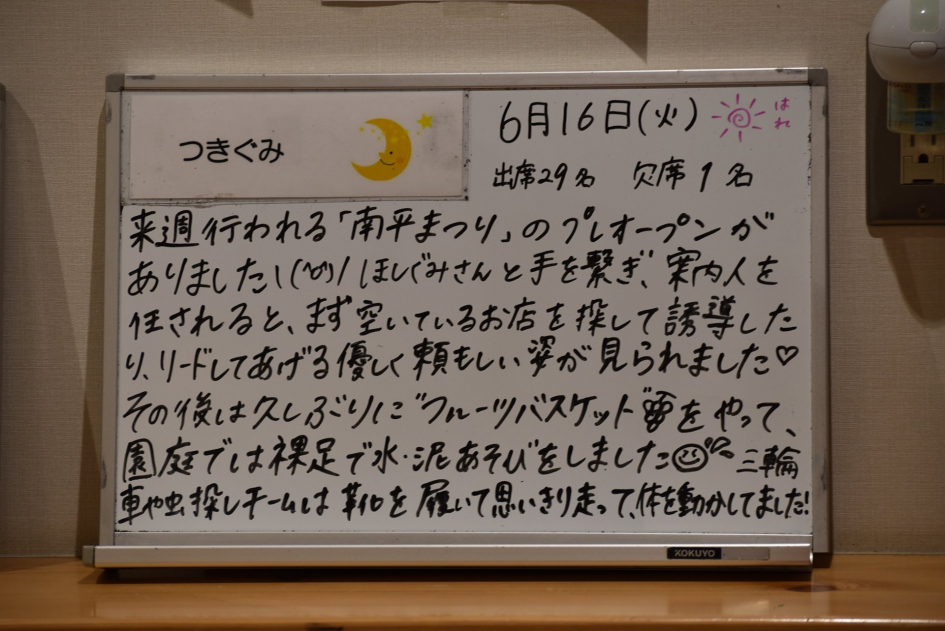 つきぐみ
6月16日(火)
はれ
出席29名 欠席1名
来週行われる「南平まつり」のプレオープンが
ありました\(^o^)/ ほしぐみさんと手を繋ぎ、案内人を
任されると、まず空いているお店を探して誘導した
り、リードしてあげる優しく頼もしい姿が見られました♡
その後は久しぶりに"フルーツバスケット"をやって、
園庭では裸足で水・泥あそびをしました 三輪
車や虫探しチームは靴を履いて思いきり走って、体を動かしてました!
KOKUYO